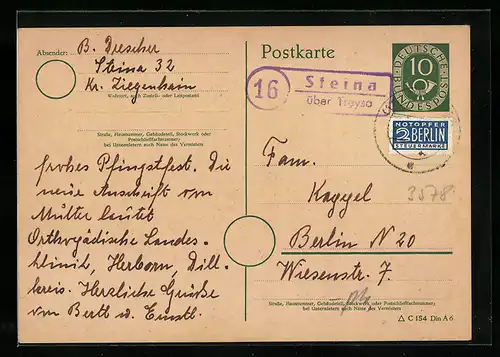 Absender: B. Drescher
Steina 32
Kr. Ziegenhain
Wohnort, auch Zustell- oder Leitpostamt
Straße, Hausnummer, Gebäudeteil, Stockwerk oder
Postschließfachnummer;
bei Untermietern auch Name des Vermieters
frohes Pfingstfest. Die
neue Anschrift von
Mutter lautet
Orthopädische Landes-
klinik, Herborn, Dill-
kreis. Herzliche Grüße
von Berth u.
Postkarte
16
Steina
über Treysa
DEUTSCHE BUNDESPOST
10
NOTOPFER
2 BERLIN
STEUERMARKE
Fam.
Kaggel
3578
Berlin N 20
Wiesenstr. 7.
Straße, Hausnummer, Gebäudeteil, Stockwerk oder Postschließfachnummer;
bei Untermietern auch Name des Vermieters
△ C 154 Din A 6